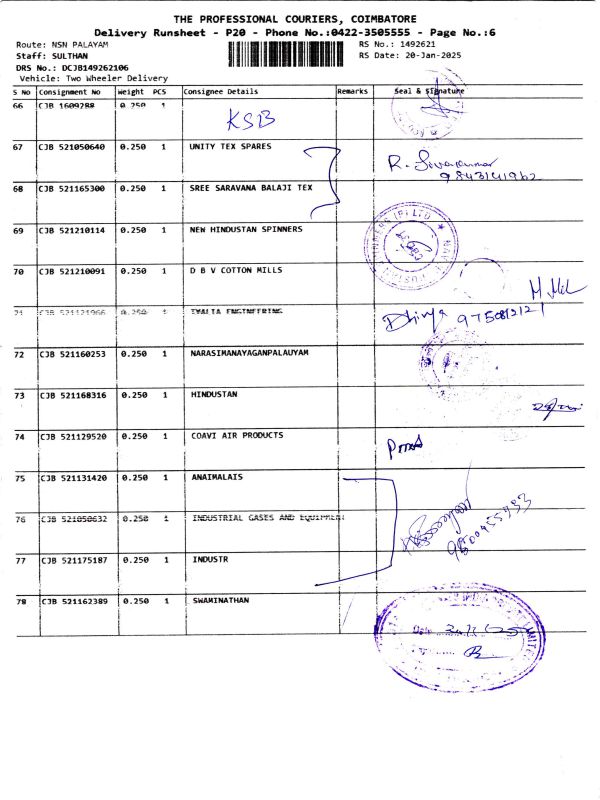 THE PROFESSIONAL COURIERS, COIMBATORE
Delivery Runsheet - P20 - Phone No.:0422-3505555 - Page No.:6
Route: NSN PALAYAM RS No.: 1492621
Staff: SULTHAN RS Date: 20-Jan-2025
DRS No.: DCJB149262106
Vehicle: Two Wheeler Delivery
S No Consignment No Weight PCS Consignee Details Remarks Seal & Signature
66 CJB 1609288 0.250 1
KSB
67 CJB 521050640 0.250 1 UNITY TEX SPARES
R. Sivakumar
9843141962
68 CJB 521165300 0.250 1 SREE SARAVANA BALAJI TEX
69 CJB 521210114 0.250 1 NEW HINDUSTAN SPINNERS
70 CJB 521210091 0.250 1 D B V COTTON MILLS
71 CJB 521121966 0.250 1 ENGINEERING
Dhivya
72 CJB 521160253 0.250 1 NARASIMANAYAGANPALAUYAM
73 CJB 521168316 0.250 1 HINDUSTAN
74 CJB 521129520 0.250 1 COAVI AIR PRODUCTS
75 CJB 521131420 0.250 1 ANAIMALAIS
76 CJB 521050632 0.250 1 INDUSTRIAL GASES AND EQUIPMEN
77 CJB 521175187 0.250 1 INDUSTR
78 CJB 521162389 0.250 1 SWAMINATHAN